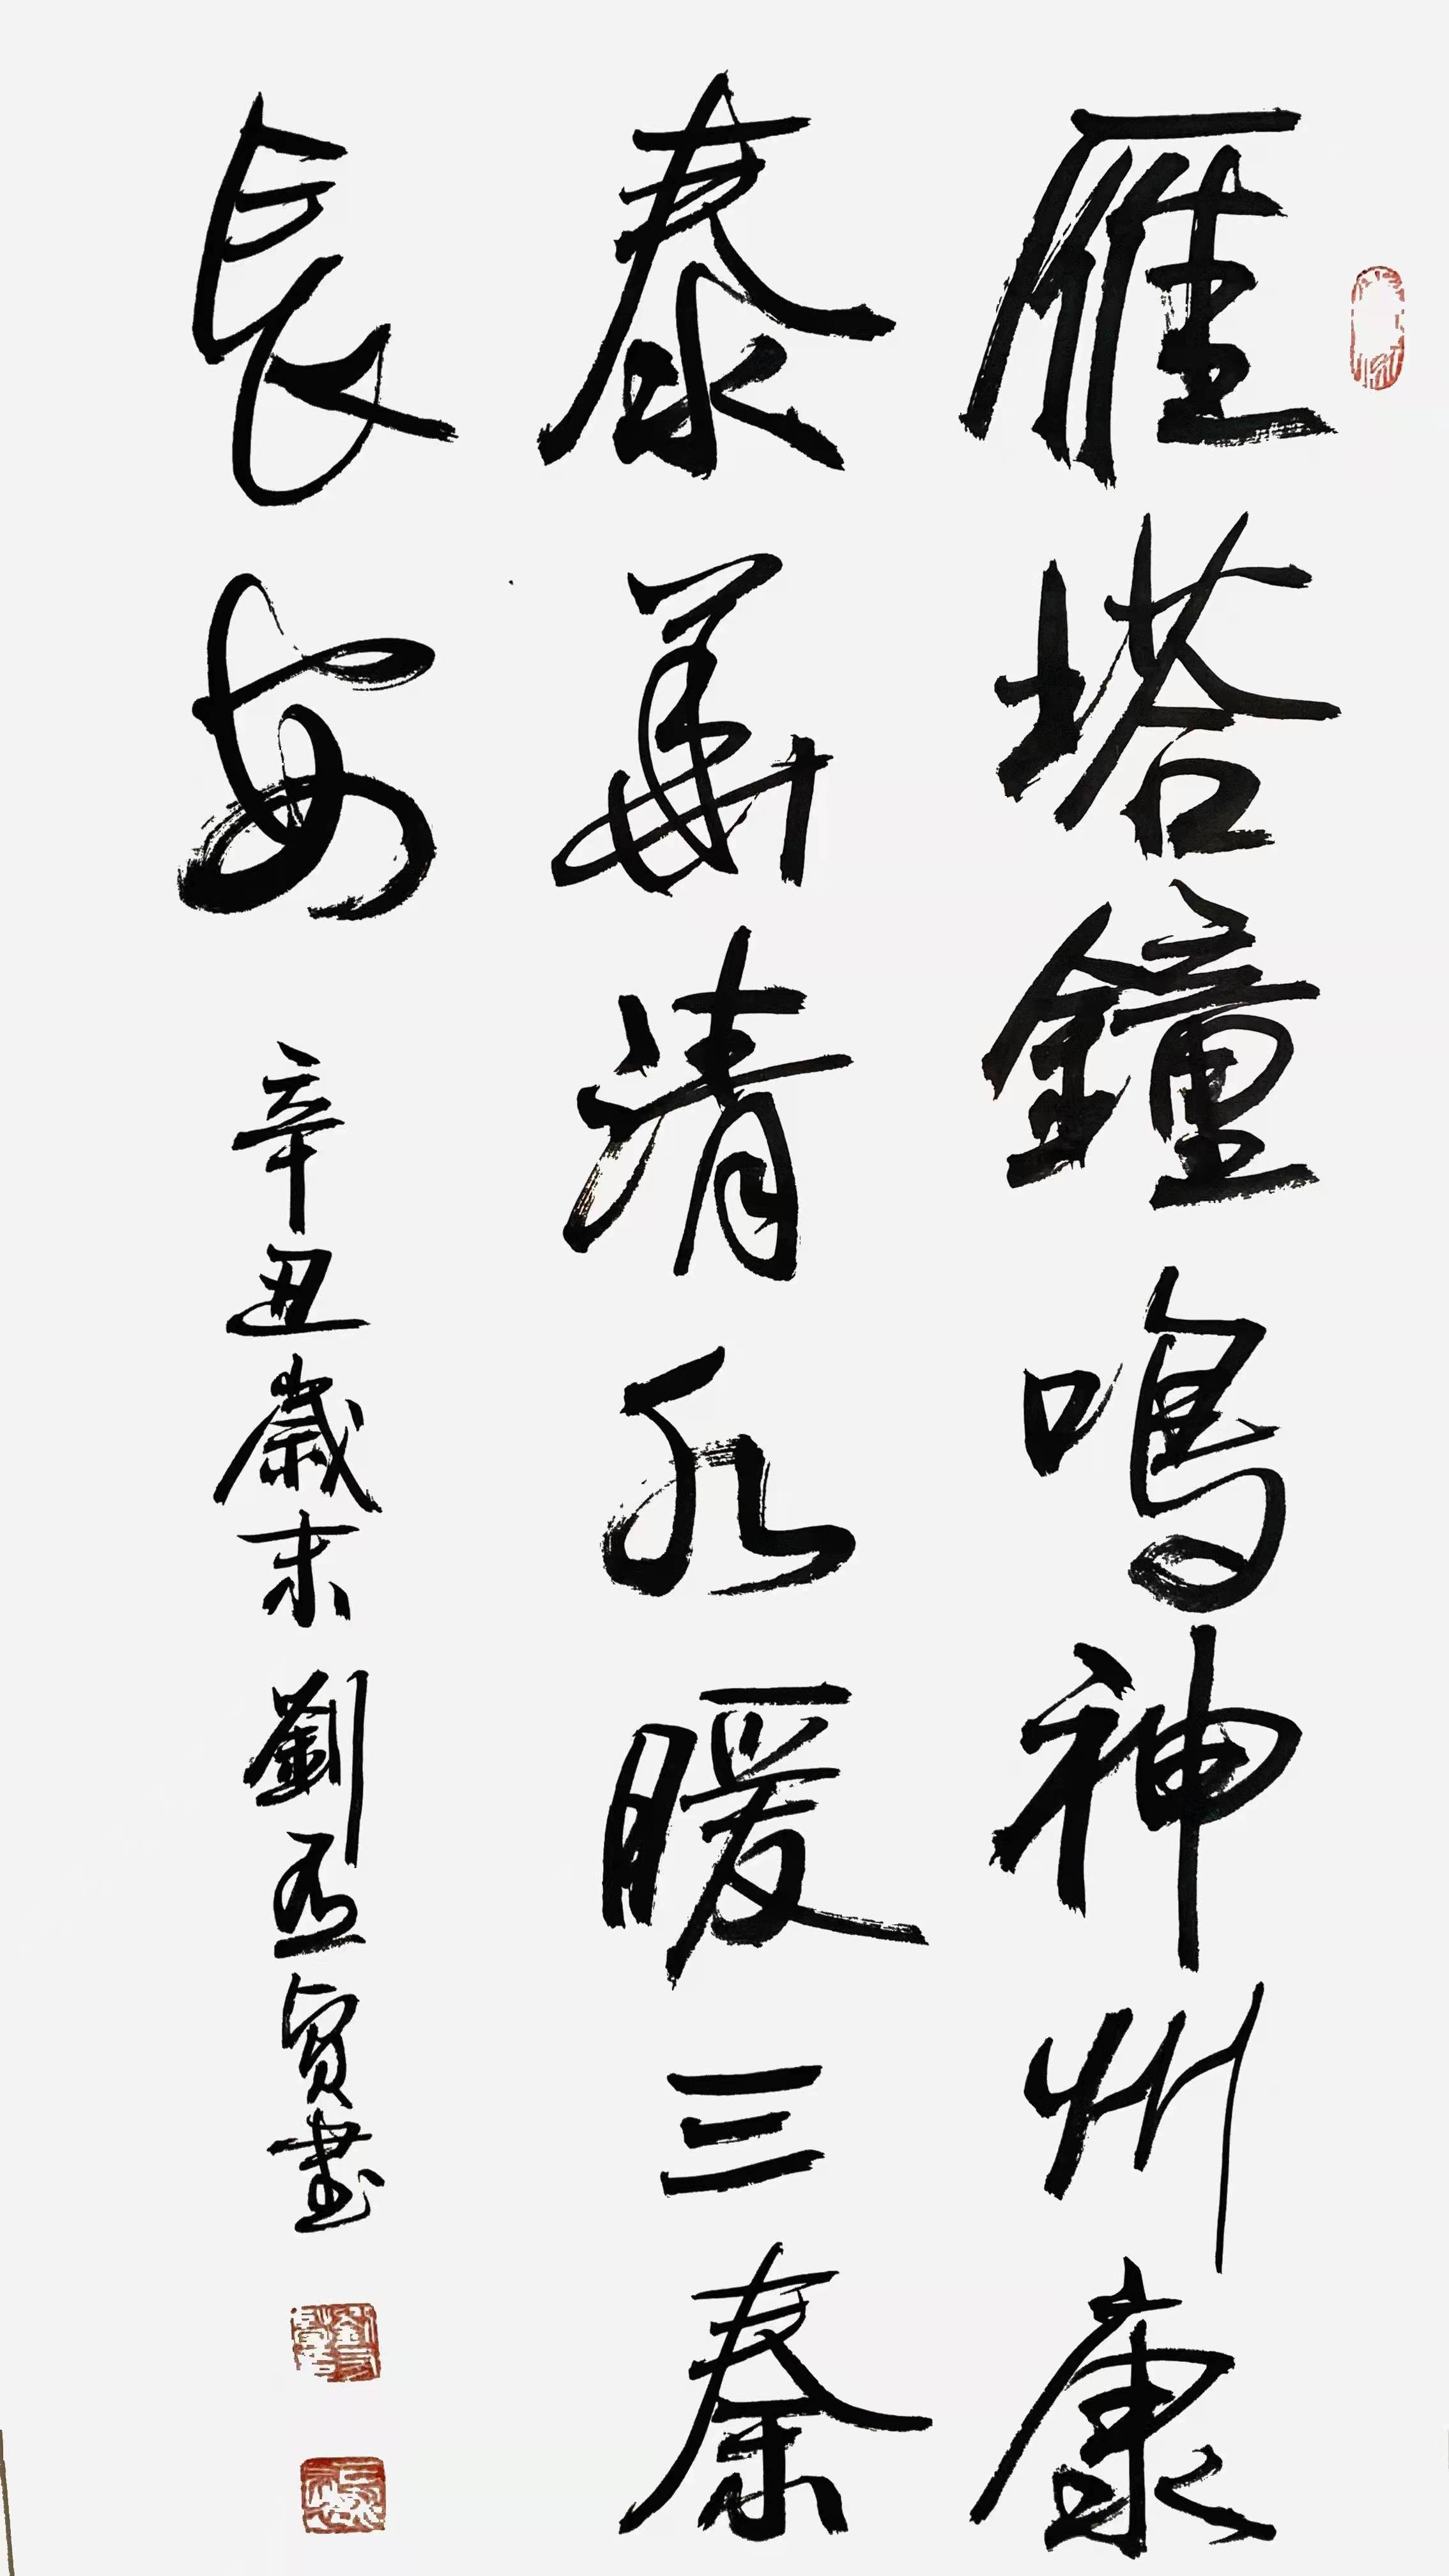 雁塔鐘鳴神州康
泰華清水暖三秦
長安
辛丑歲末 劉 賓書